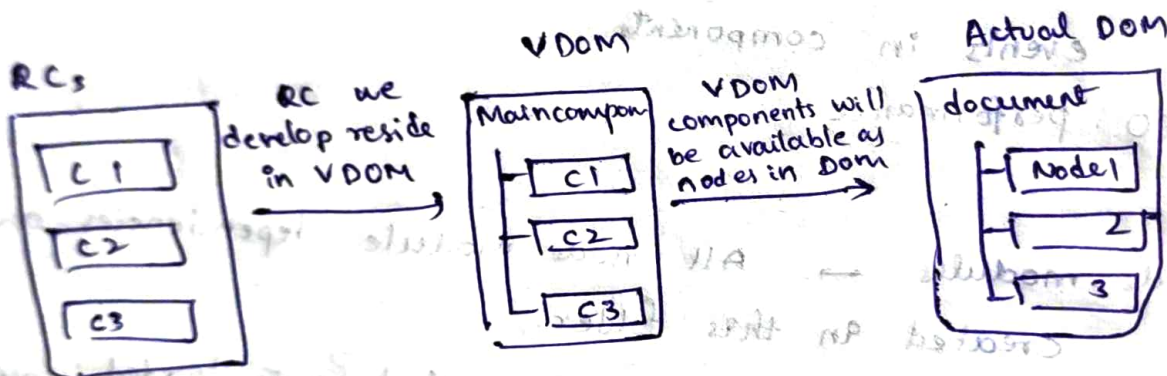 RCs
C1
C2
C3
RC we
develop reside
in VDOM
VDOM
Maincompon
C1
C2
C3
VDOM
components will
be available as
nodes in Dom
Actual DOM
document
Node1
2
3